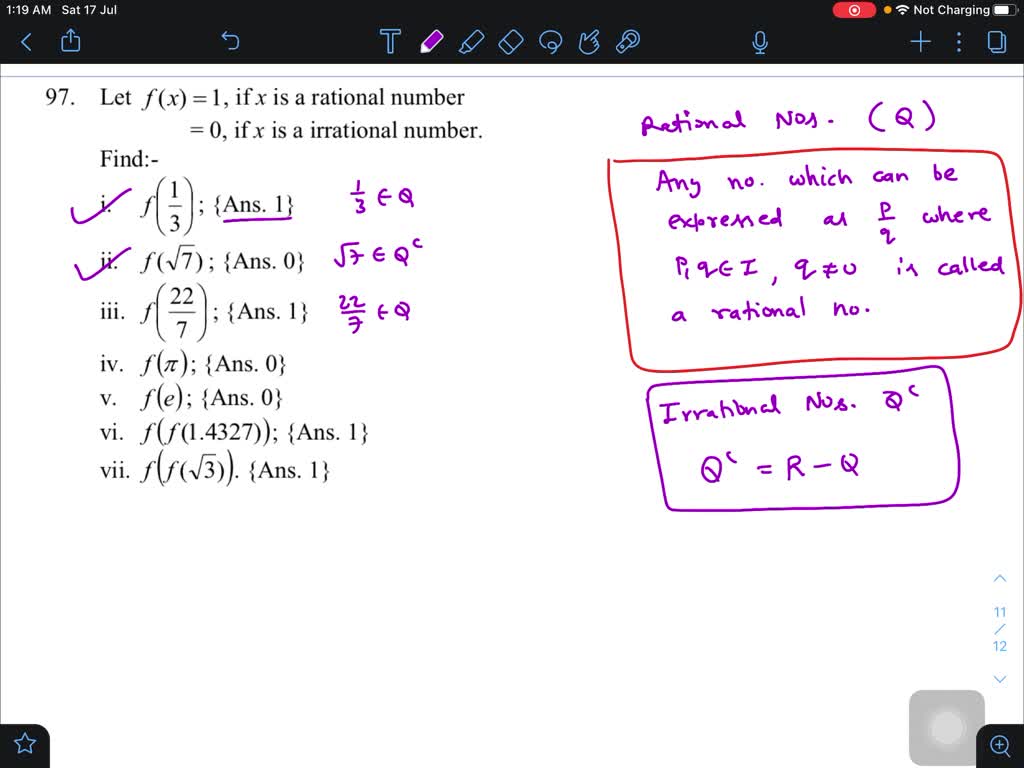 1:19 AM Sat 17 Jul
Not Charging
97. Let f(x) = 1, if x is a rational number
= 0, if x is a irrational number.
Find:-
i. f(1/3); {Ans. 1} 1/3 ∈ Q
ii. f(√7); {Ans. 0} √7 ∈ Qᶜ
iii. f(22/7); {Ans. 1} 22/7 ∈ Q
iv. f(π); {Ans. 0}
v. f(e); {Ans. 0}
vi. f(f(1.4327)); {Ans. 1}
vii. f(f(√3)). {Ans. 1}
Rational Nos. (Q)
Any no. which can be
expressed as P/q where
P, q ∈ I, q ≠ 0 is called
a rational no.
Irrational Nos. Qᶜ
Qᶜ = R - Q
11
/
12